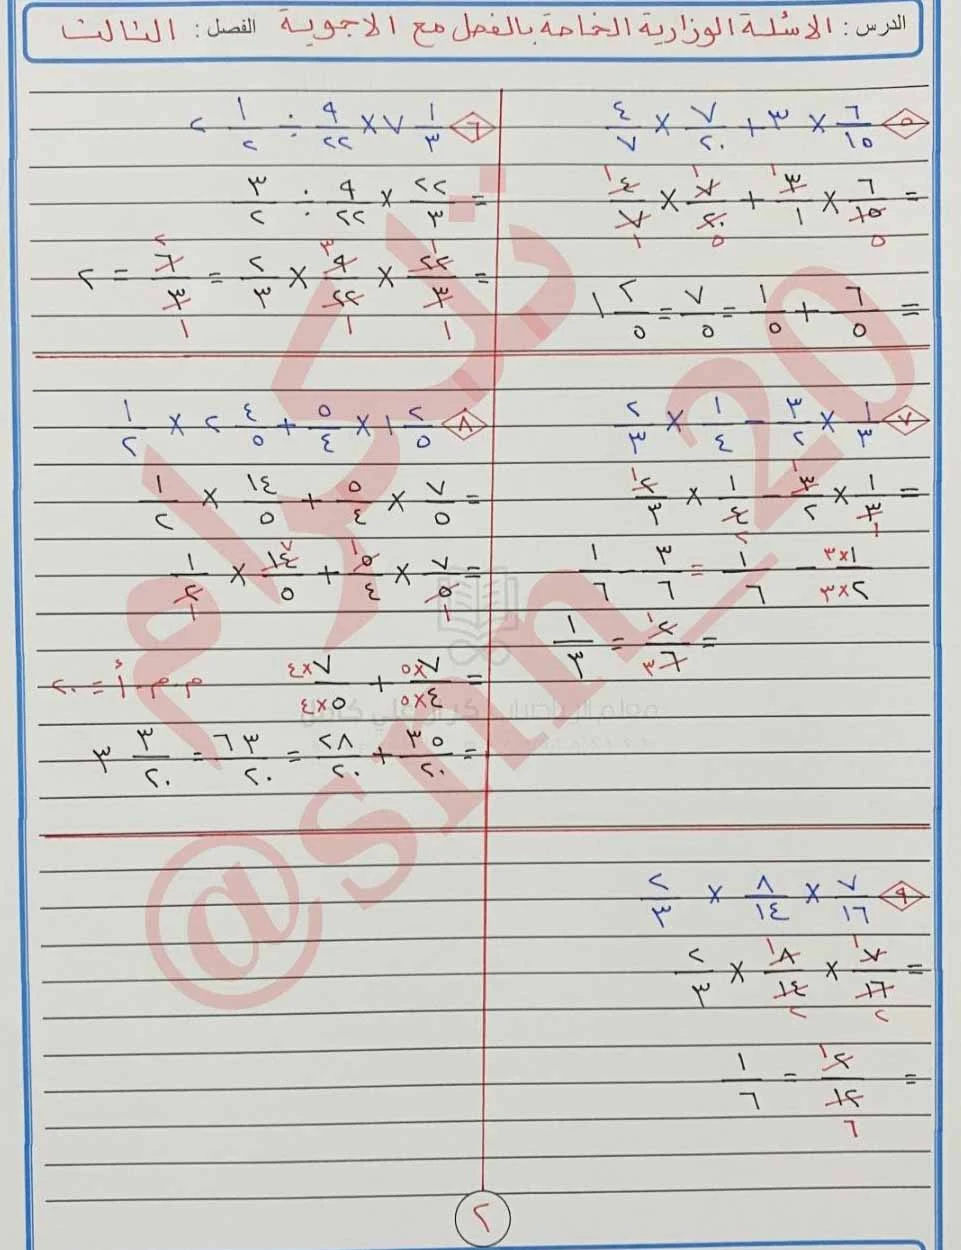 الدرس: الاسئلة الوزارية الخاصة بالفصل مع الاجوبة الفصل: الثالث
٥ ٦/١٥ × ٣ + ٧/٢٠ × ٤/٧
= ٦/١٥ × ٣/١ + ٧/٢٠ × ٤/٧
٥ ١ ١ ٥ ١ ١
= ٦/٥ + ١/٥ = ٧/٥ = ١ ٢/٥
٦ ٧ ١/٣ × ٩/٢٢ ÷ ٢ ١/٢
= ٢٢/٣ × ٩/٢٢ ÷ ٣/٢
= ٢٢/٣ × ٩/٢٢ × ٢/٣ = ٦/٣ = ٢
١ ١ ٣ ١ ٢ ١
٧ ١/٣ × ٣/٢ − ١/٤ × ٢/٣
= ١/٣ × ٣/٢ − ١/٤ × ٢/٣
١ ١ ٢ ١
١×٣/٢×٣ − ١/٦ = ٣/٦ − ١/٦
= ٢/٦ = ١/٣
١ ٣
٨ ١ ٢/٥ × ٥/٤ + ٢ ٤/٥ × ١/٢
= ٧/٥ × ٥/٤ + ١٤/٥ × ١/٢
= ٧/٥ × ٥/٤ + ١٤/٥ × ١/٢
١ ١ ٧ ١
= ٧×٥/٤×٥ + ٧×٤/٥×٤ م.م.أ = ٢٠
= ٣٥/٢٠ + ٢٨/٢٠ = ٦٣/٢٠ = ٣ ٣/٢٠
٩ ٧/١٦ × ٨/١٤ × ٢/٣
= ٧/١٦ × ٨/١٤ × ٢/٣
١ ٢ ١ ٢
= ٢/١٢ = ١/٦
١ ٦
٢
@snn_20